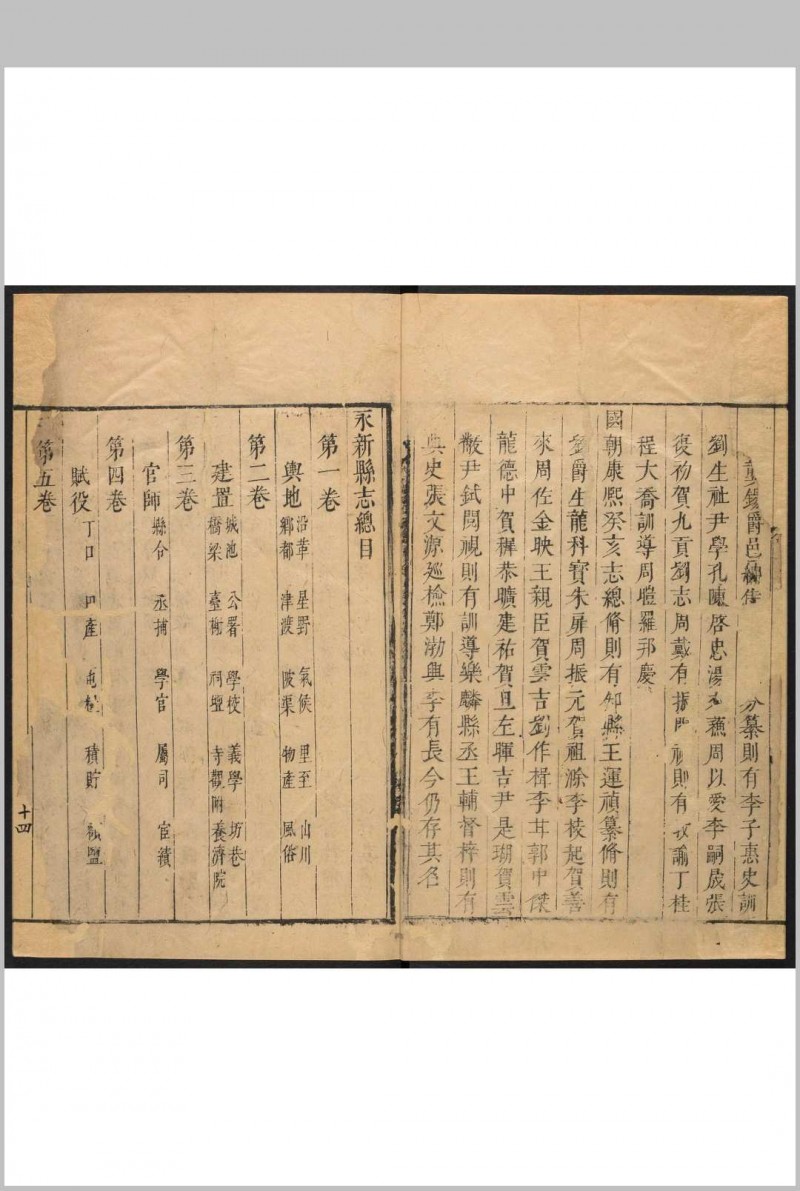 錫爵邑 分纂則有李子惠史訓
劉生祉尹學孔陳啓忠湯 蘓周以愛李嗣晟張
復初賀九貢劉志周戴有振 則有 諭丁桂
程大喬訓導周愷羅邦慶
國朝康熙癸亥志總脩則有知縣王運禎纂脩則有
劉爵生龍科寳朱屏周振元賀祖滁李棱起賀善
來周佐金映王親臣賀雲吉劉作楫李苷郭中傑
龍德中賀穉恭曠建祐賀 左暉吉尹是瑚賀雲
黻尹鉽閱視則有訓導樂麟縣丞王輔督梓則有
典史張文源巡檢鄭渤興李有長今仍存其名
永新縣志總目
第一卷
輿地 沿革 星野 氣候 里至 山川
鄉都 津渡 陂渠 物產 風俗
第二卷
建置 城池 公署 學校 義學 坊巷
橋梁 臺榭 祠壇 寺觀附 養濟院
第三卷
官師 縣令 丞捕 學官 屬司 宦績
第四卷
賦役 丁口 田產 屯糧 積貯 鹽
第五卷
十四